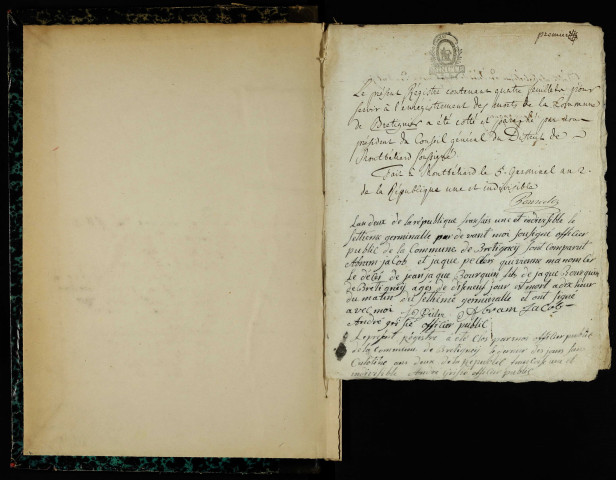 premier
Le présent Registre contenant quatre feuillets pour
servir à l'enregistrement des morts de la Commune
de Bretigney a été cotté et paraphé par moi
président du Conseil général du District de
Montbéliard soussigné
Fait à Montbéliard le 6. Germinal an 2.
de la République une et indivisible
Lan deux de la république fransaise une et indivisible le
settieme germinalle par devant moi sousigné officier
public de la Commune de Bretigney sont comparut
Abram jacob et jaque pour manoncer
le déces de jean jaque Bourquin fils de jaque bourquin
de Bretigney ages de jour est mort a heur
du matin du settieme germinalle et ont signé
avec moi Abram Jacob
André officier public
Le present régistre a été clos par moi officier public
de la commune de Bretigney le premier des jours
Culotide an deux de la république fransaise une et
indivisible Andre officier public